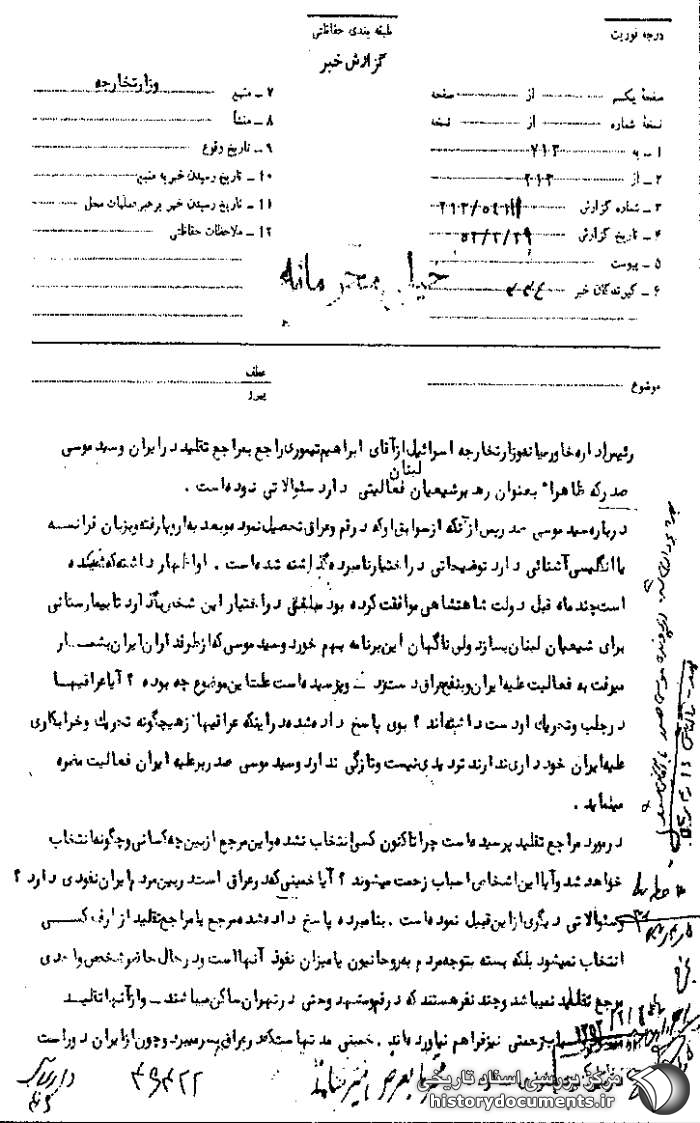 درجه فوریت
طبقه بندی حفاظتی
گزارش خبر
صفحهٔ یکم از صفحه
نسخهٔ شماره از نسخه
۱ ـ به ۷۱۳
۲ ـ از ۲۱۳
۳ ـ شماره گزارش
۴ ـ تاریخ گزارش
۵ ـ پیوست
۶ ـ گیرندگان خبر
۷ ـ منبع وزارتخارجه
۸ ـ منشأ
۹ ـ تاریخ وقوع
۱۰ ـ تاریخ رسیدن خبر به منبع
۱۱ ـ تاریخ رسیدن خبر برهبر عملیات محل
۱۲ ـ ملاحظات حفاظتی
خیلی محرمانه
موضوع
عطف
پیرو
رئیس اداره خاورمیانه وزارتخارجه اسرائیل از آقای ابراهیم تیموری راجع بمراجع تقلید در ایران و سید موسی
صدر که ظاهراً بعنوان رهبر شیعیان لبنان فعالیتی دارد سئوالاتی نموده است .
درباره سید موسی صدر پس از آنکه از سوابق او که در قم و عراق تحصیل نموده و بعد به اروپا رفته و بزبان فرانسه
یا انگلیسی آشنائی دارد توضیحاتی در اختیار نامبرده گذاشته شده است . او اظهار داشته که شنیده
است چند ماه قبل دولت شاهنشاهی موافقت کرده بود مبلغی در اختیار این شخص بگذارد تا بیمارستانی
برای شیعیان لبنان بسازد ولی ناگهان این برنامه بهم خورد و سید موسی که از طرفداران ایران بشمار
میرفت به فعالیت علیه ایران و بنفع عراق دست زد ـ و پرسیده است علت این موضوع چه بوده ؟ آیا عراقیها
در جلب و تحریک او دست داشته‌اند ؟ بوی پاسخ داده شده در اینکه عراقیها از هیچگونه تحریک و خرابکاری
علیه ایران خودداری ندارند تردیدی نیست و تازگی ندارد و سید موسی صدر بر علیه ایران فعالیت مضره
مینماید .
در مورد مراجع تقلید پرسیده است چرا تاکنون کسی انتخاب نشده و این مرجع از بین چه کسانی و چگونه انتخاب
خواهد شد و آیا این اشخاص اسباب زحمت میشوند ؟ آیا خمینی که در عراق است در بین مردم ایران نفوذی دارد ؟
و سئوالاتی دیگری از این قبیل نموده است . بنامبرده پاسخ داده شده مرجع یا مراجع تقلید از طرف کسی
انتخاب نمیشود بلکه بسته بتوجه مردم به روحانیون یا میزان نفوذ آنها است و در حال حاضر شخص واحدی
مرجع تقلید نمیباشد و چند نفر هستند که در قم و مشهد و حتی در تهران ساکن میباشند ـ و از آنها تقلید
زحمتی نیز فراهم نیاورده‌اند . خمینی مدتهاست که در عراق بسر میبرد و چون از ایران دور است
۴۹۴۲۲
مرکز بررسی اسناد تاریخی
historydocuments.ir